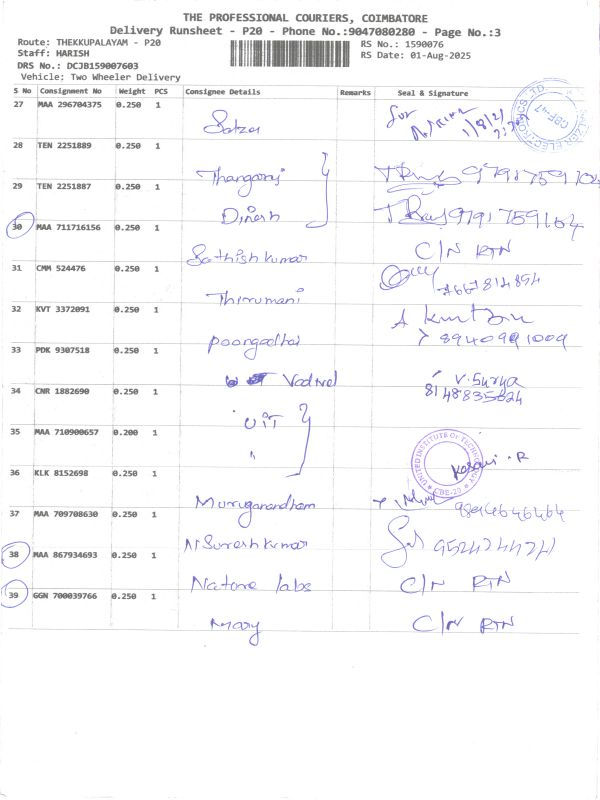 THE PROFESSIONAL COURIERS, COIMBATORE
Delivery Runsheet - P20 - Phone No.:9047080280 - Page No.:3
Route: THEKKUPALAYAM - P20
RS No.: 1590076
Staff: HARISH
RS Date: 01-Aug-2025
DRS No.: DCJB159007603
Vehicle: Two Wheeler Delivery
S No Consignment No Weight PCS Consignee Details Remarks Seal & Signature
27 MAA 296704375 0.250 1
Salzer for 1/8/21
28 TEN 2251889 0.250 1
Thangaraj
29 TEN 2251887 0.250 1
Dinesh 9791759164
30 MAA 711716156 0.250 1
Sathish kumar C/N RTN
31 CMM 524476 0.250 1
Thirumani 7667814894
32 KVT 3372091 0.250 1
poongothai 8940991009
33 PDK 9307518 0.250 1
Vadivel V. Surya
8148835624
34 CNR 1882690 0.250 1
UIT
35 MAA 710900657 0.200 1
"
UNITED INSTITUTE OF TECHNOLOGY
CBE-20
36 KLK 8152698 0.250 1
Muruganandham 9894646464
37 MAA 709708630 0.250 1
N Suresh kumar 9524244271
38 MAA 867934693 0.250 1
Natone labs C/N RTN
39 GGN 700039766 0.250 1
Mary C/N RTN